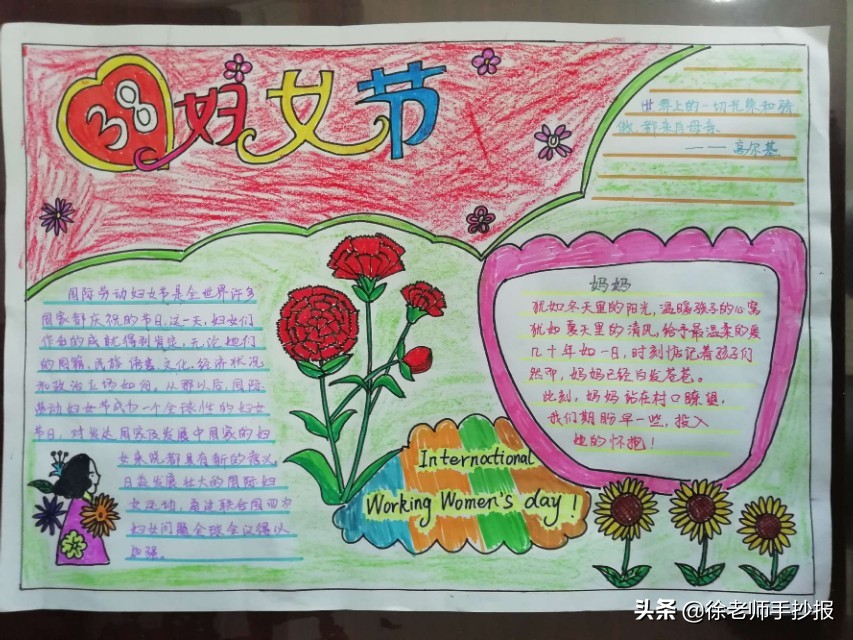 38妇女节
世界上的一切光荣和骄
傲,都来自母亲
——高尔基
国际劳动妇女节是全世界许多
国家都庆祝的节日,这一天,妇女们
作出的成就得到肯定,无论她们
的国籍、民族、语言、文化、经济状况
和政治立场如何。从那以后,国际
劳动妇女节成为一个全球性的妇女
节日,对发达国家及发展中国家的妇
女来说都具有新的意义。
日益发展壮大的国际妇
女运动,通过联合国四次
妇女问题全球会议得以
加强。
妈妈
犹如冬天里的阳光,温暖孩子的心窝
犹如夏天里的清风,给予最温柔的爱
几十年如一日,时刻惦记着孩子们
然而,妈妈已经白发苍苍。
此刻,妈妈站在村口瞭望,
我们期盼早一些,投入
她的怀抱!
International
Working Women's day!
头条 @徐老师手抄报